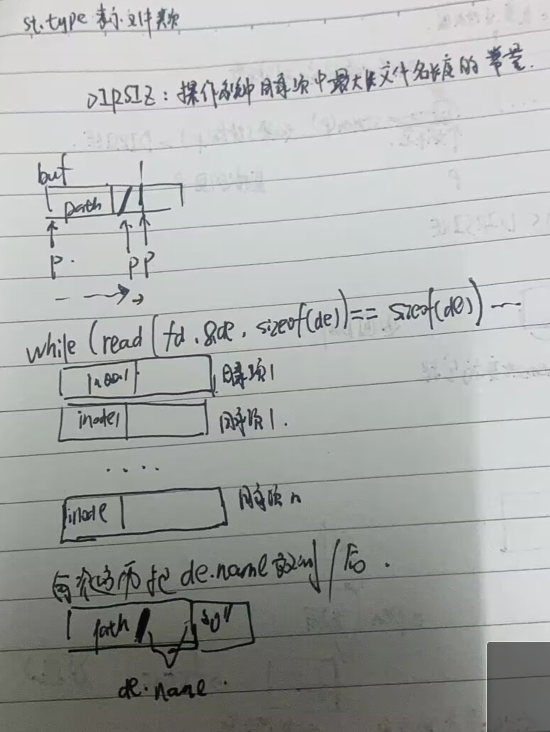 st.type 表示文件类型
DIRSIZ：操作系统中目录项中最大长文件名长度的常量.
buf
path /
P. P P
while (read (fd, &de, sizeof(de)) == sizeof(de)) ...
目录项1
inode1 目录项1.
....
inode 目录项n
每次遍历把 de.name 放到 / 后.
path / "0"
de.name.